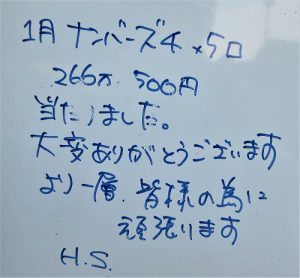 1月 ナンバーズ4 × 5口
266万 500円
当たりました。
大変ありがとうございます
より一層、皆様の為に
頑張ります
H.S.